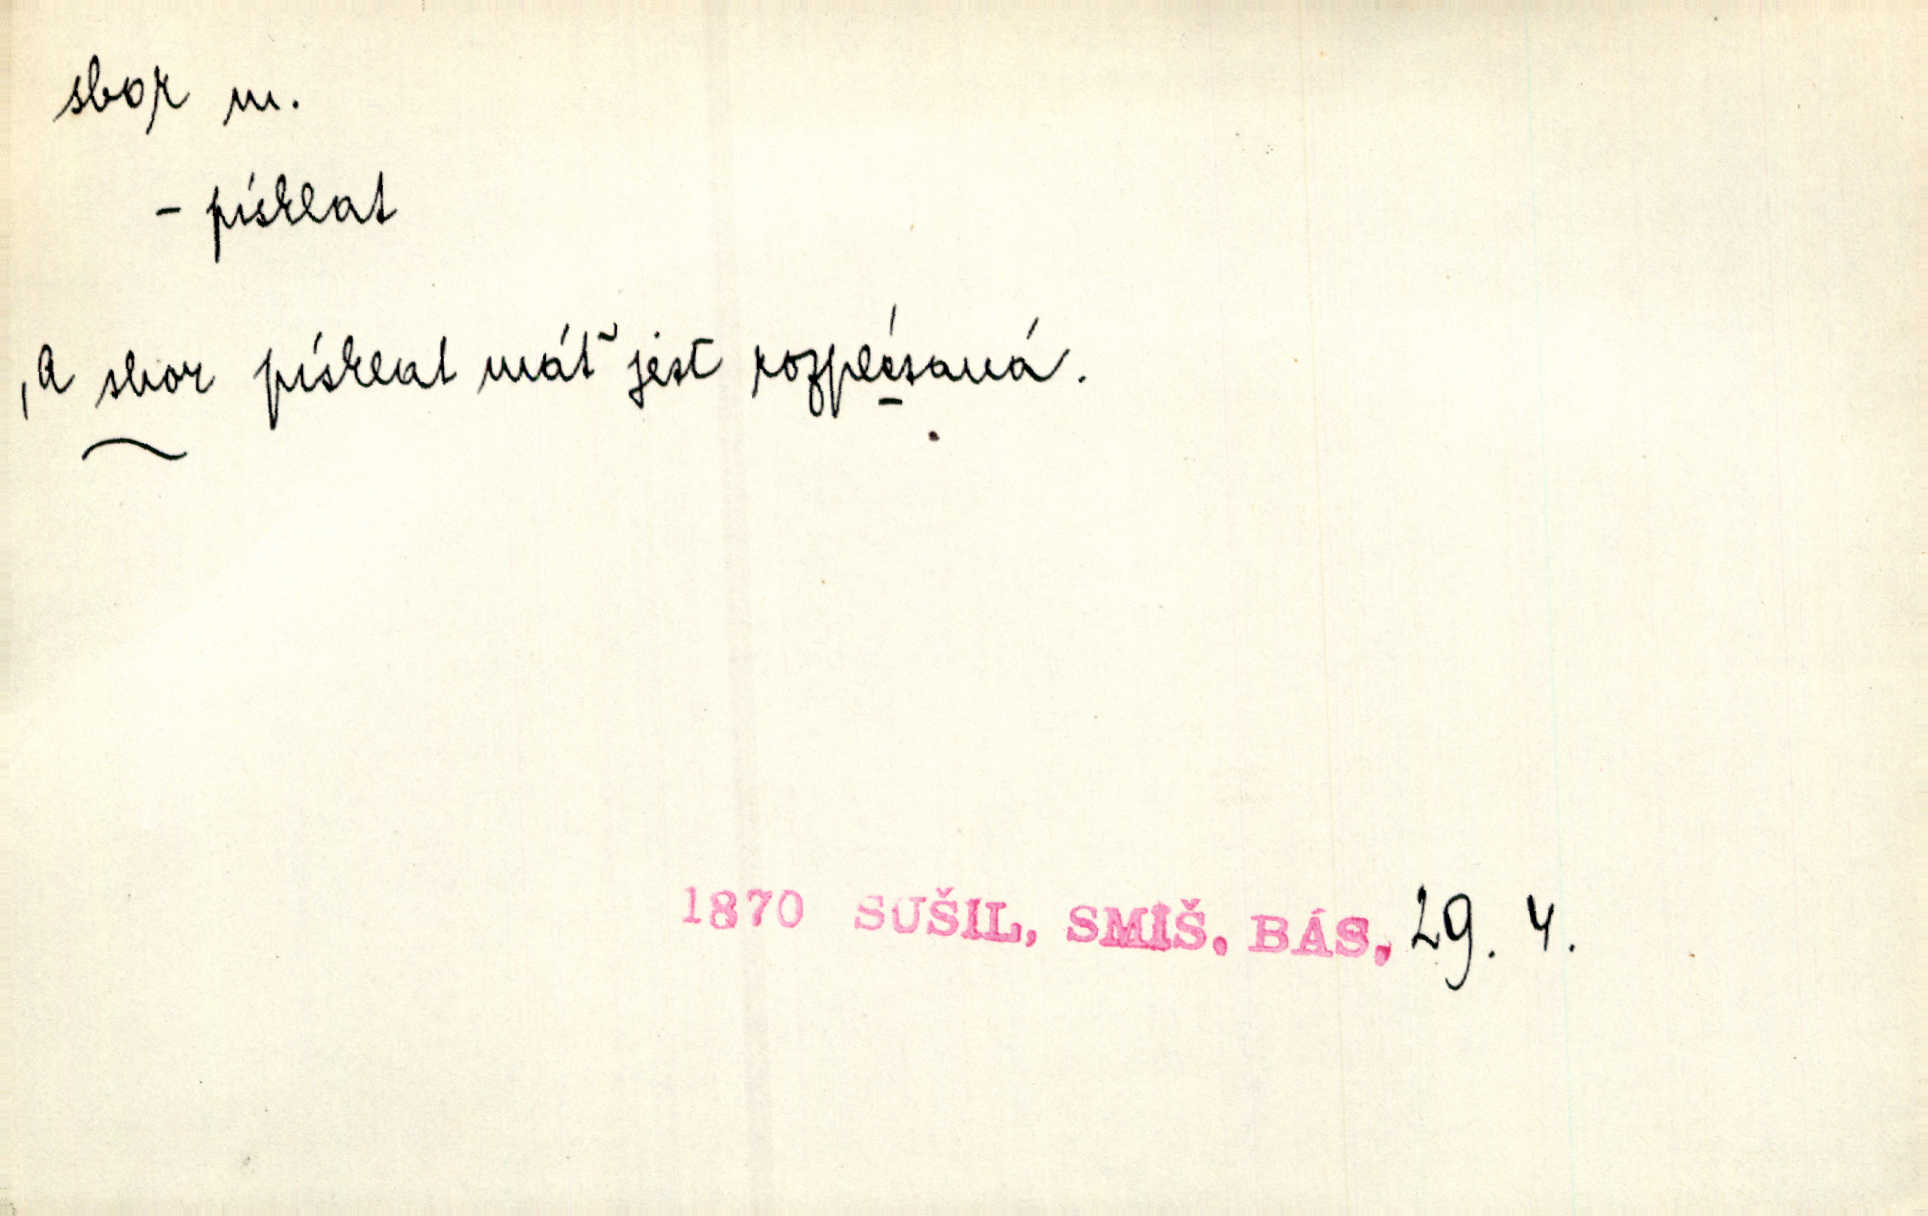 sbor m.
- písklat
, A sbor písklat máť jest rozplésaná.
1870 SUŠIL, SMÍŠ. BÁS, 29. 4.